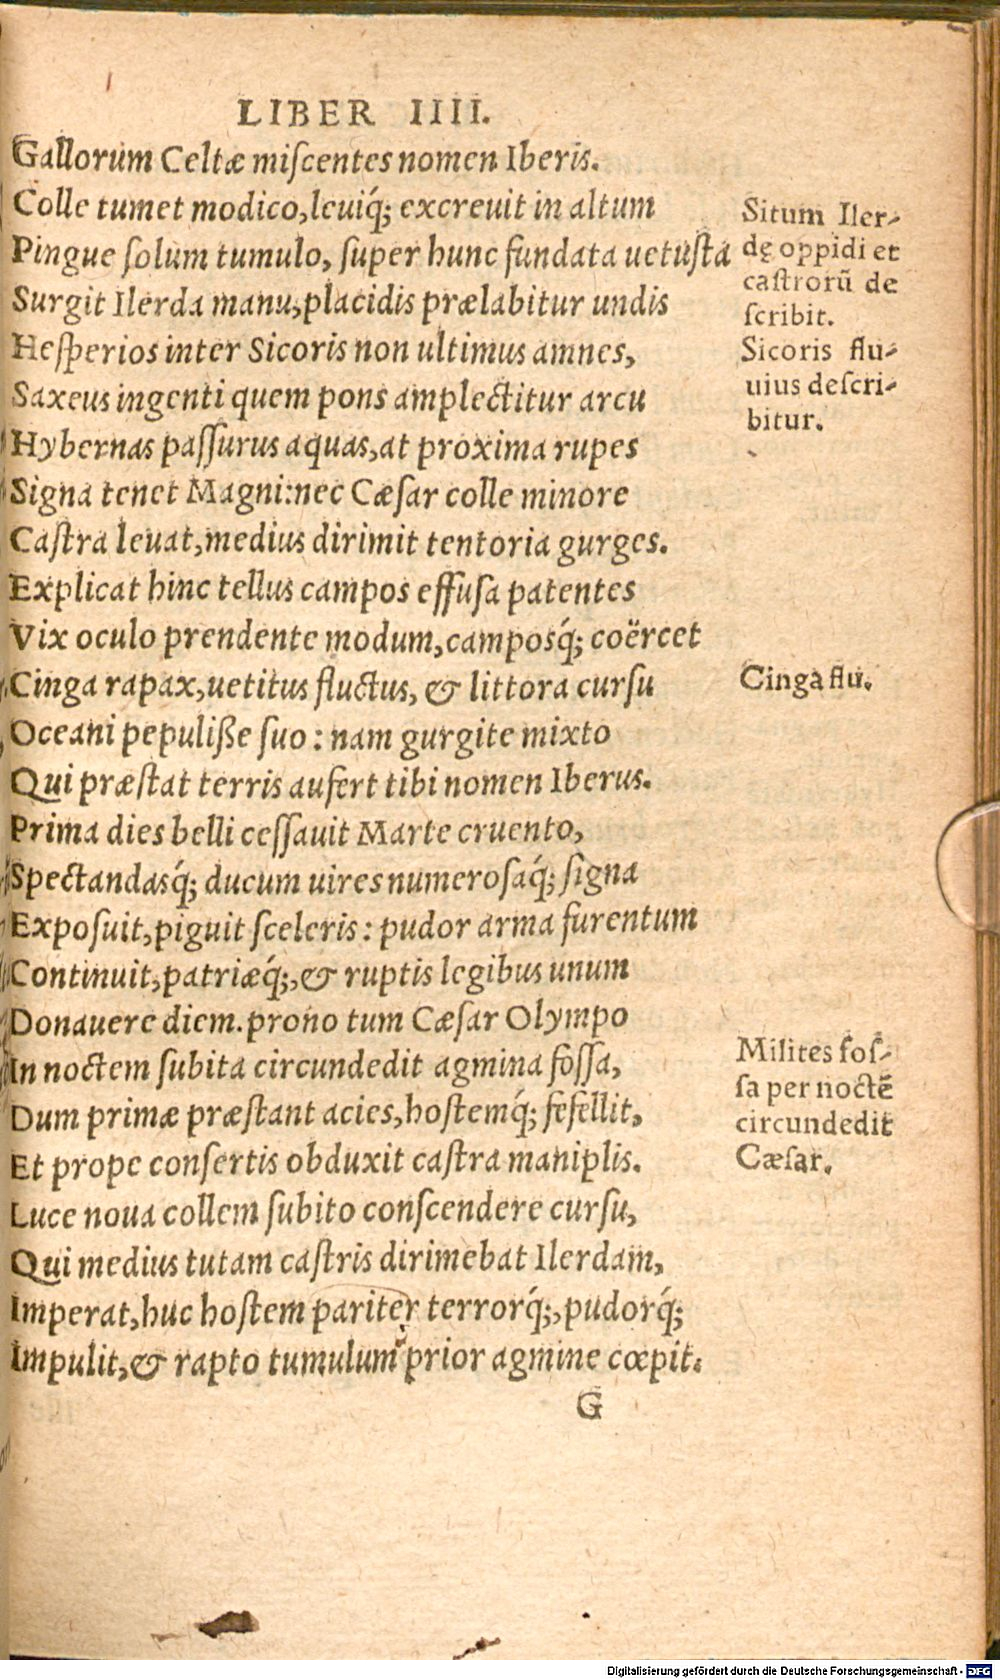 LIBER IIII.
Gallorum Celtæ miſcentes nomen Iberis.
Colle tumet modico, leuiq́; excreuit in altum
Pingue ſolum tumulo, ſuper hunc fundata uetuſta
Surgit Ilerda manu, placidis prælabitur undis
Heſperios inter Sicoris non ultimus amnes,
Saxeus ingenti quem pons amplectitur arcu
Hybernas paſſurus aquas, at proxima rupes
Signa tenet Magni: nec Cæſar colle minore
Caſtra leuat, medius dirimit tentoria gurges.
Explicat hinc tellus campos effuſa patentes
Vix oculo prendente modum, campoſq́; coërcet
Cinga rapax, uetitus fluctus, & littora curſu
Oceani pepuliße ſuo: nam gurgite mixto
Qui præſtat terris aufert tibi nomen Iberus.
Prima dies belli ceſſauit Marte cruento,
Spectandasq́; ducum uires numerosaq́; ſigna
Expoſuit, piguit ſceleris: pudor arma furentum
Continuit, patriæq́;, & ruptis legibus unum
Donauere diem. prono tum Cæſar Olympo
In noctem ſubita circundedit agmina foſſa,
Dum primæ præſtant acies, hoſtemq́; fefellit,
Et prope conſertis obduxit caſtra maniplis.
Luce noua collem ſubito conſcendere curſu,
Qui medius tutam caſtris dirimebat Ilerdam,
Imperat, huc hoſtem pariter terrorq́;, pudorq́;
Impulit, & rapto tumulum prior agmine cœpit.
G
Situm Iler-
dę oppidi et
caſtrorũ de
ſcribit.
Sicoris flu-
uius deſcri-
bitur.
Cinga flu.
Milites foſ-
ſa per noctẽ
circundedit
Cæſar.
Digitalisierung gefördert durch die Deutsche Forschungsgemeinschaft - DFG